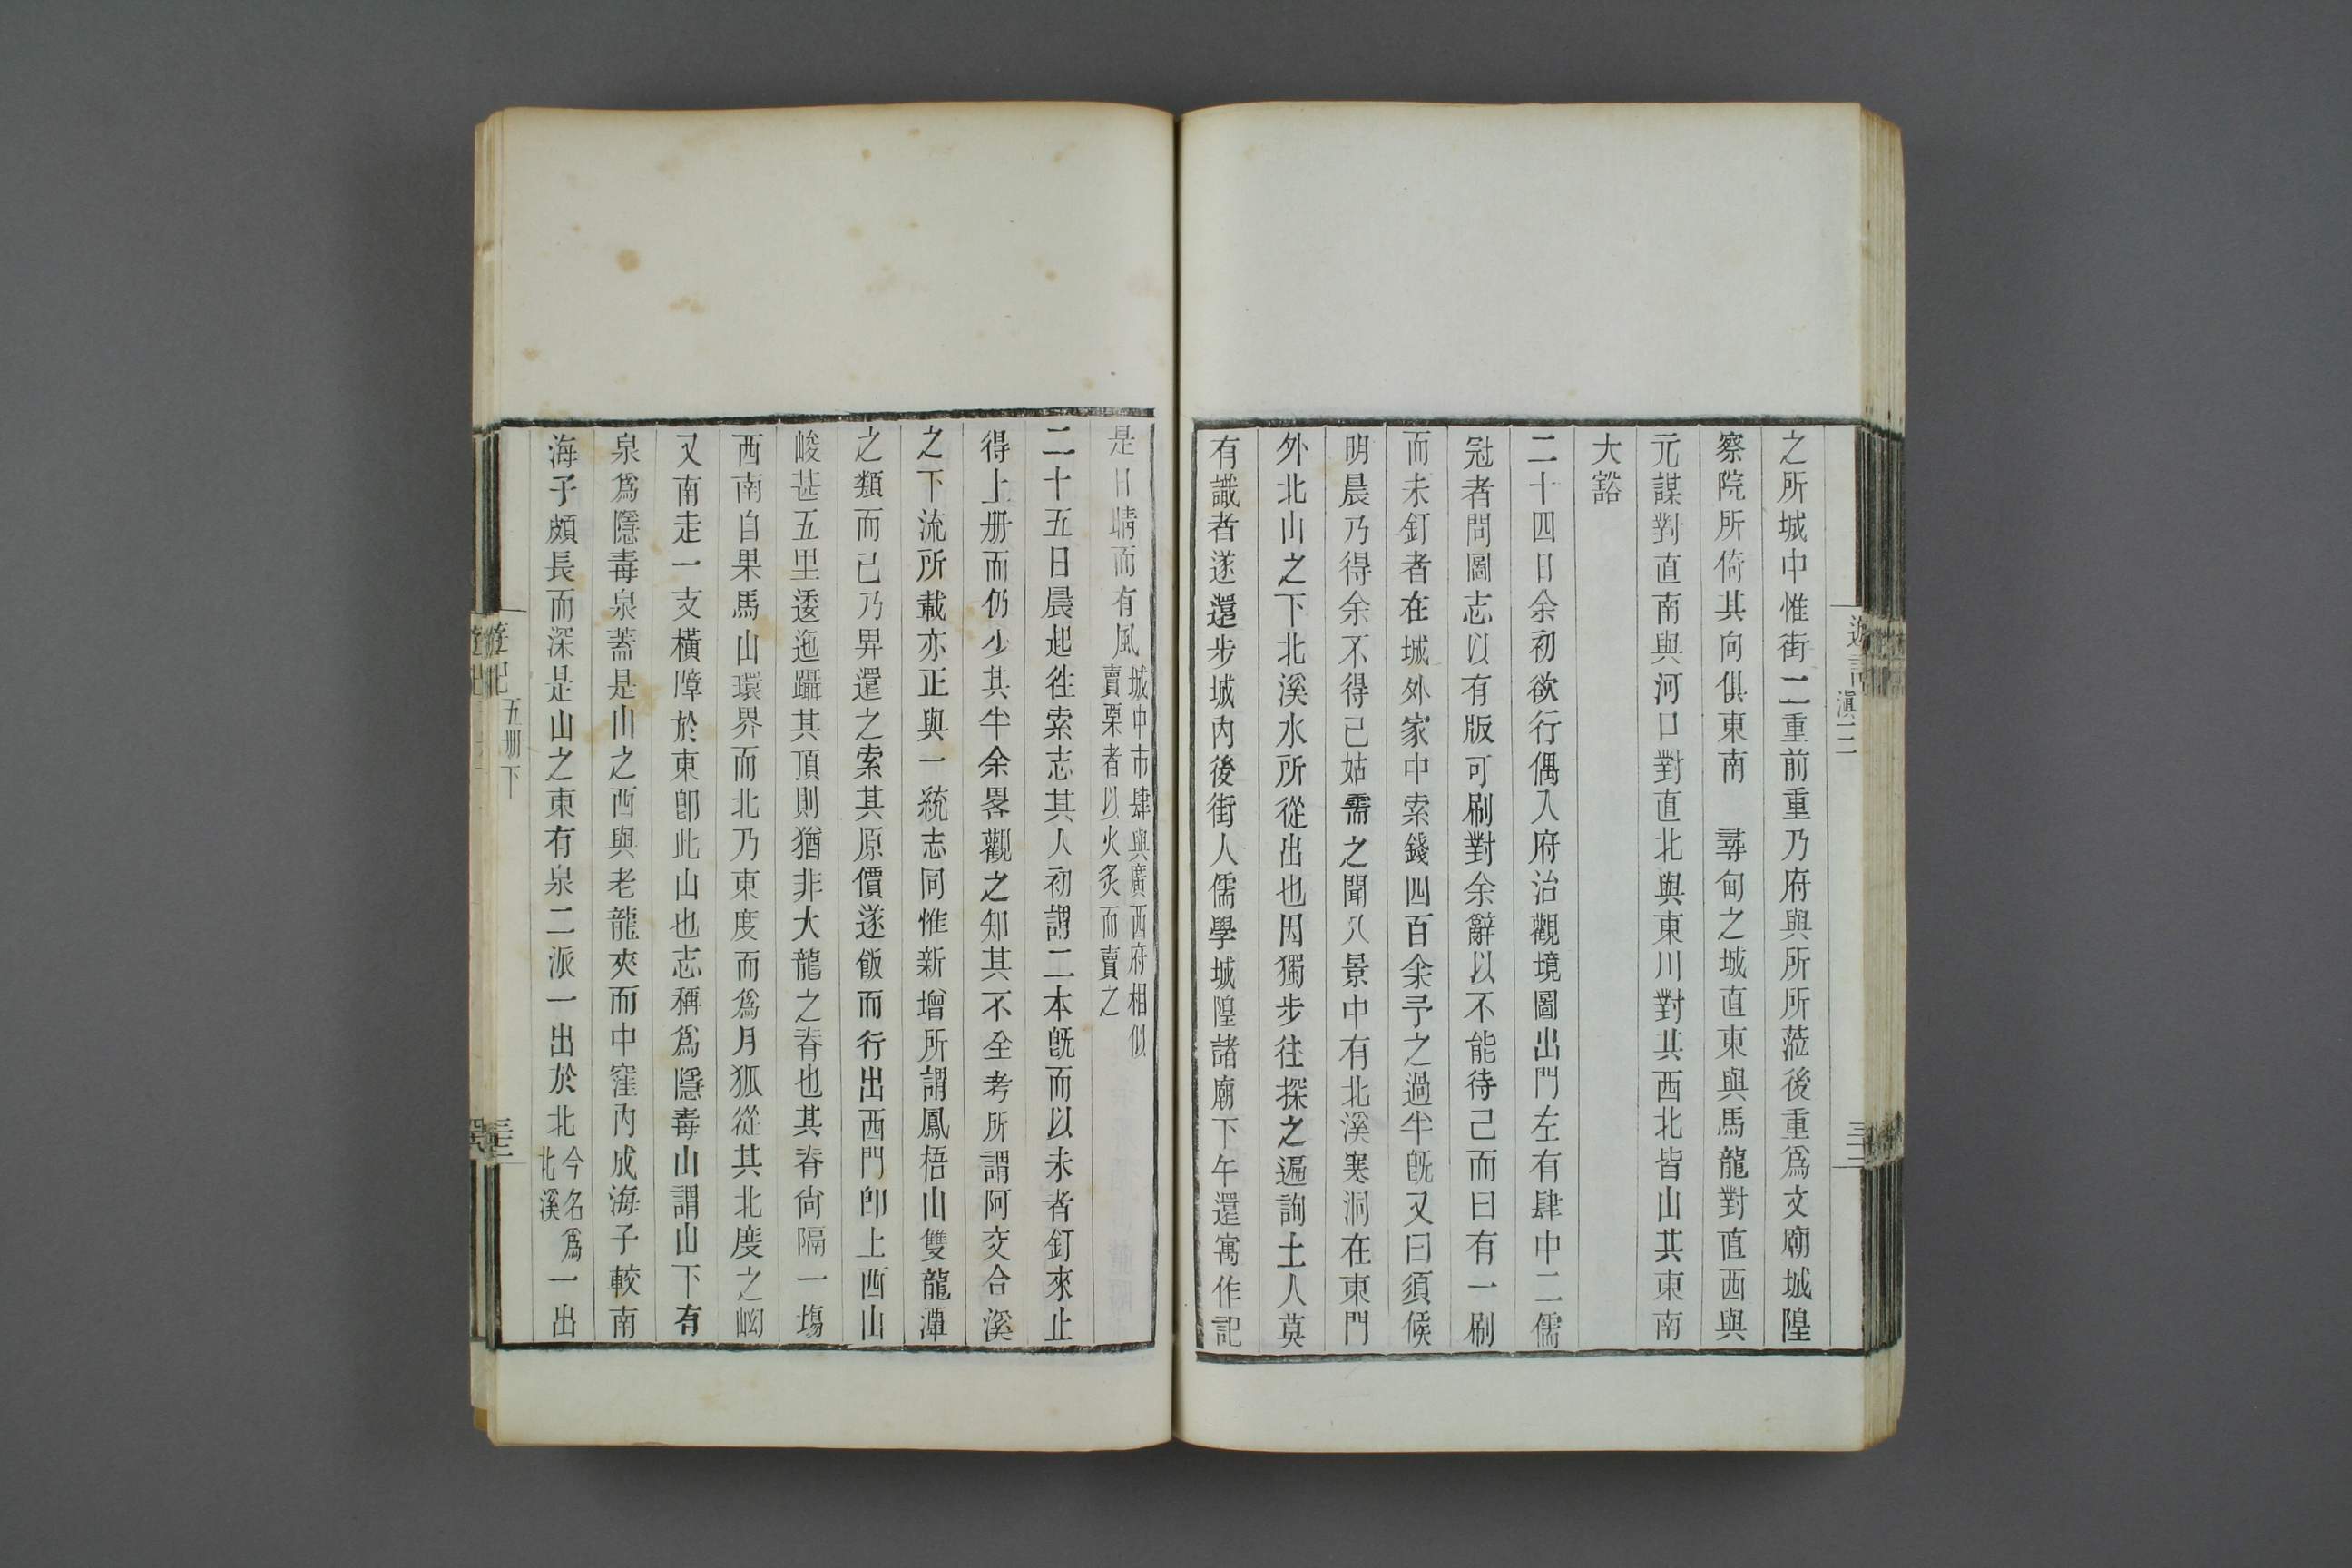 之所城中惟街二重前重乃府與所所蒞後重爲文廟城隍
察院所倚其向俱東南　尋甸之城直東與馬龍對直西與
元謀對直南與河口對直北與東川對其西北皆山其東南
大豁
二十四日余初欲行偶入府治觀境圖出門左有肆中二儒
冠者問圖志以有版可刷對余辭以不能待己而曰有一刷
而未釘者在城外家中索錢四百余予之過半旣又曰須候
明晨乃得余不得已姑需之聞八景中有北溪寒洞在東門
外北山之下北溪水所從出也因獨步往探之遍詢土人莫
有識者遂還步城內後街人儒學城隍諸廟下午還寓作記
是日晴而有風城中市肆與廣西府相似賣栗者以火炙而賣之
二十五日晨起往索志其人初謂二本旣而以未者釘來止
得上册而仍少其半余畧觀之知其不全考所謂阿交合溪
之下流所載亦正與一統志同惟新增所謂鳳梧山雙龍潭
之類而已乃畀還之索其原價遂飯而行出西門卽上西山
峻甚五里逶迤躡其頂則猶非大龍之脊也其脊尙隔一塲
西南自果馬山環界而北乃東度而爲月狐從其北度之㘭
又南走一支橫障於東卽此山也志稱爲隱毒山謂山下有
泉爲隱毒泉蓋是山之西與老龍夾而中窪內成海子較南
海子頗長而深是山之東有泉二派一出於北今名爲北溪一出
遊記
滇三
五册下